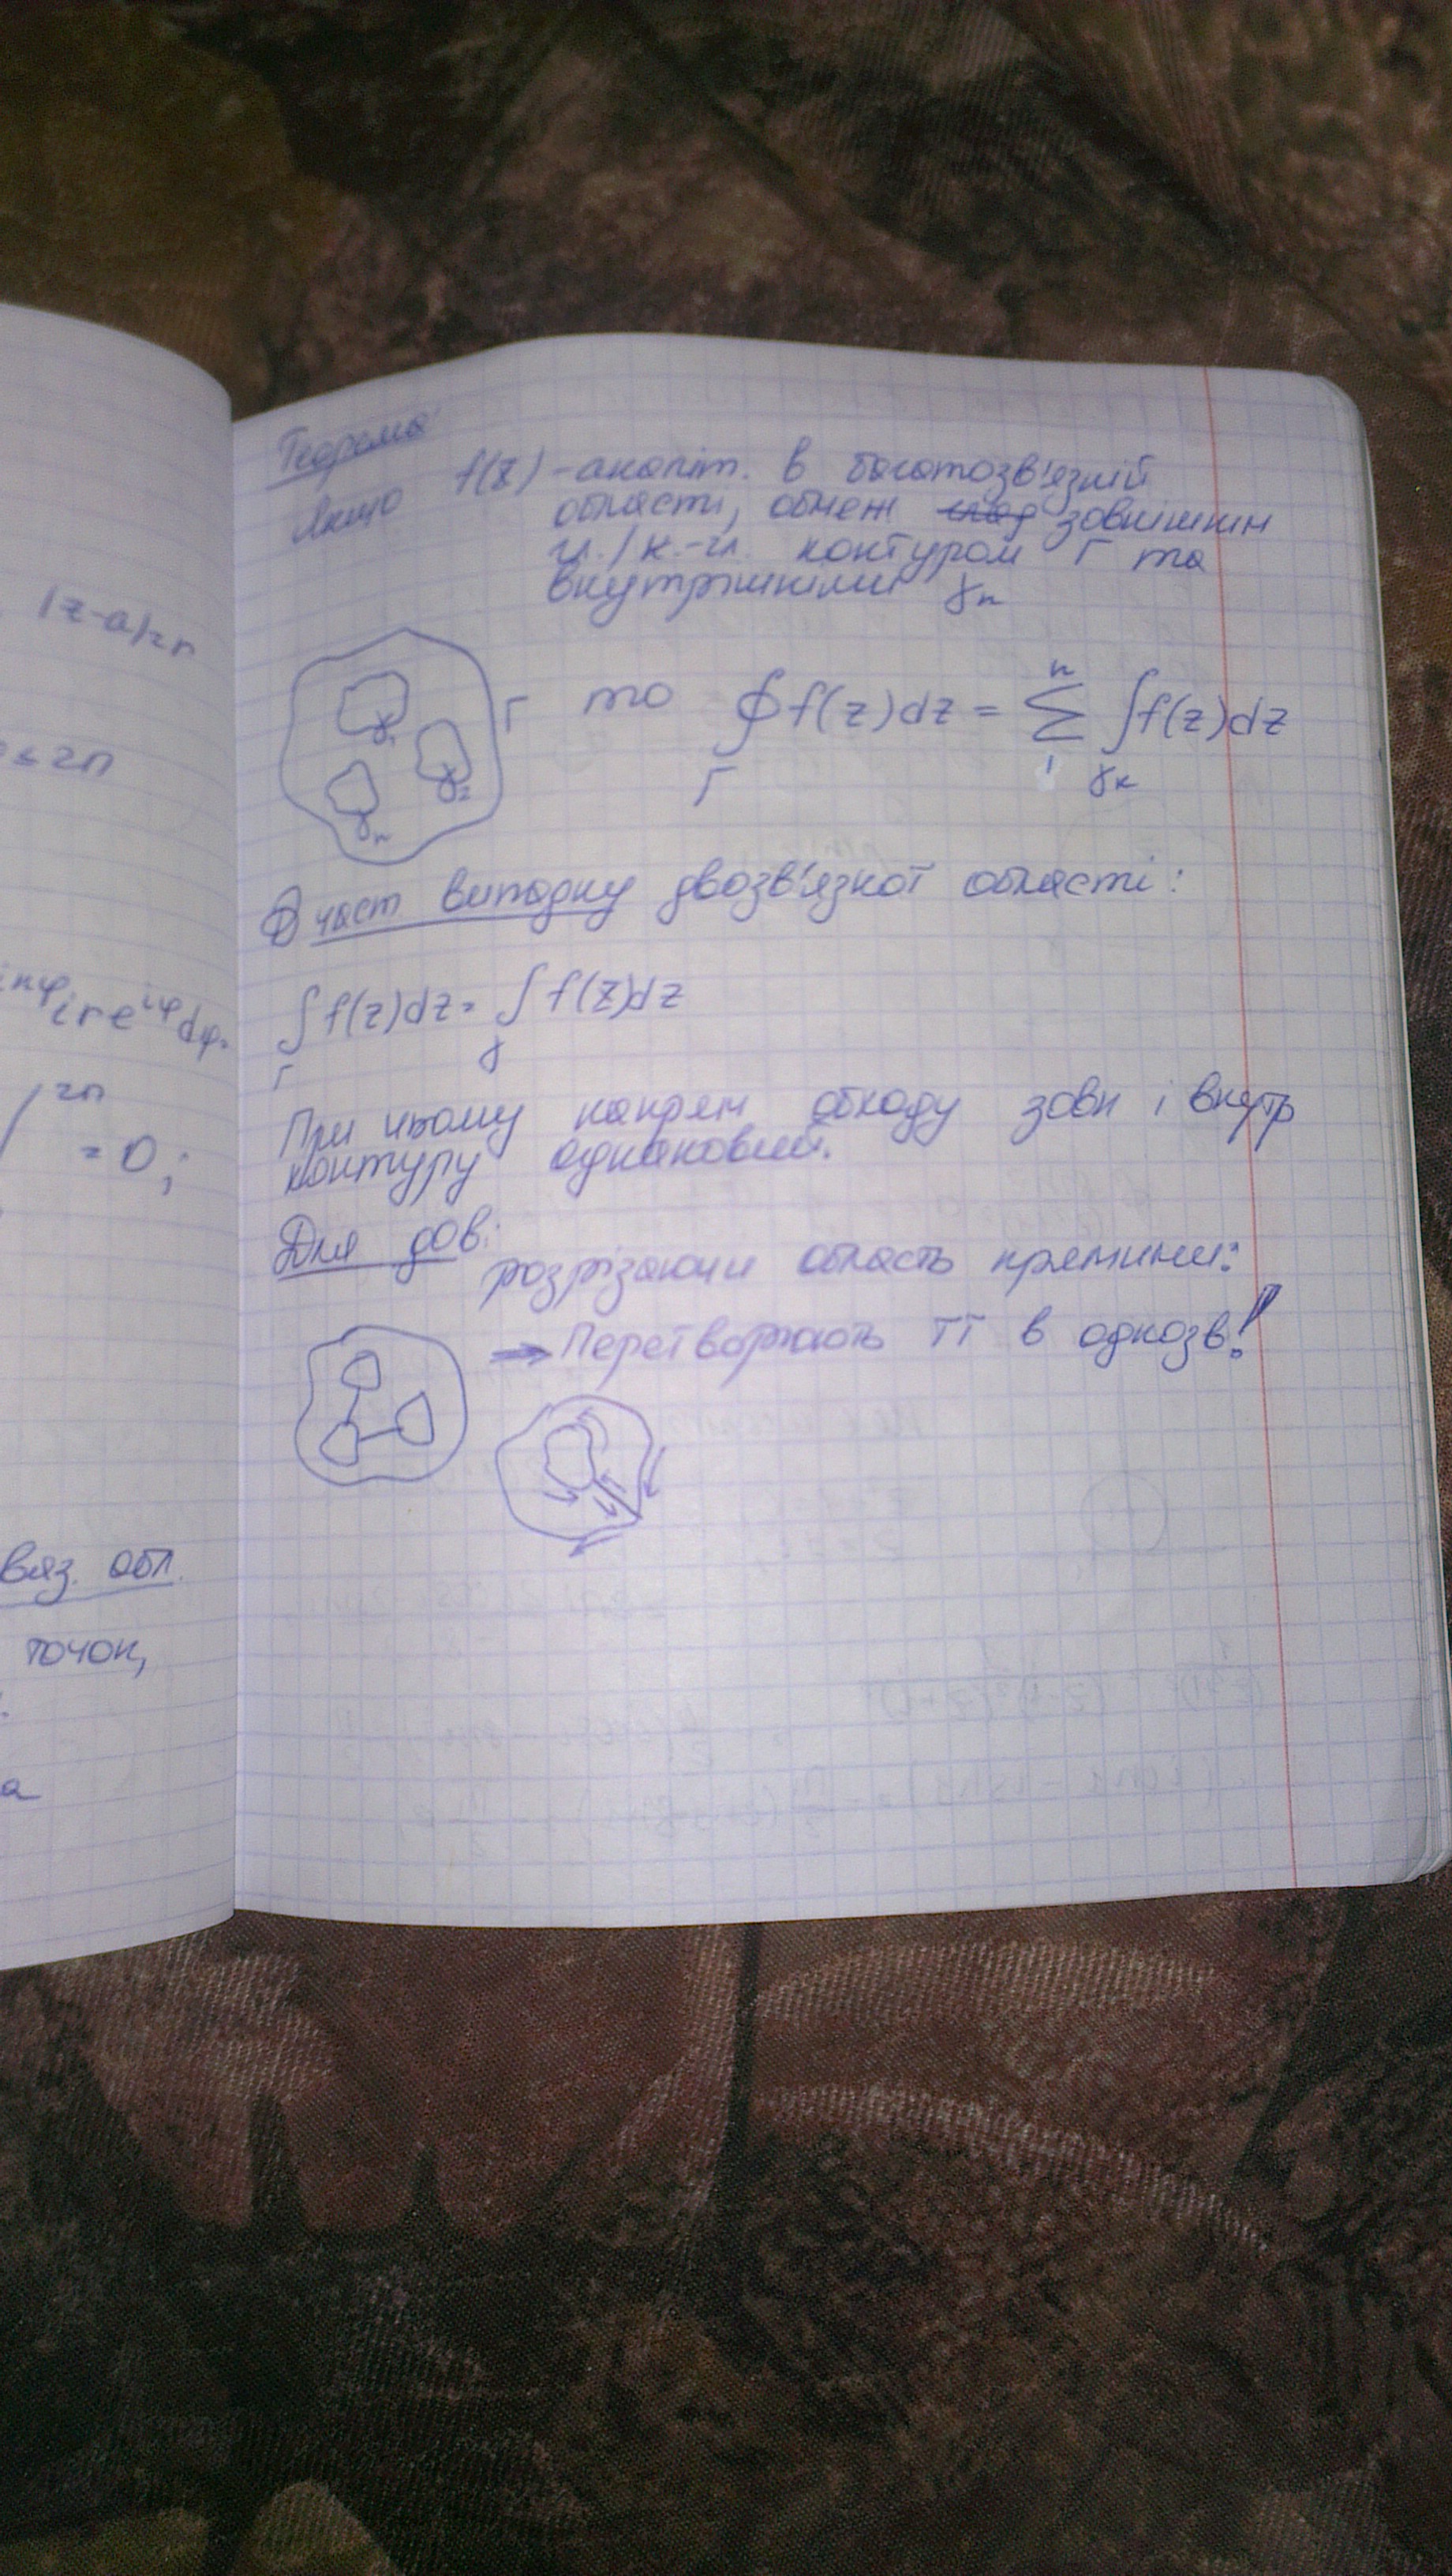 |z-a|=r
≤ 2π
ire^{iφ}dφ=
2π
= 0;
вяз. обл.
точок,
Теорема
Якщо f(z) - аналіт. в багатозв'язній
області, обмеж зовнішнім
гл./к.-гл. контуром Γ та
внутрішніми γn
γ1
γ2
γn
Γ
то ∮Γ f(z)dz = Σ_1^n ∫γк f(z)dz
част випадку двозв'язної області:
∫Γ f(z)dz = ∫γ f(z)dz
При цьому напрям обходу зовн і внутр
контуру однаковий.
Для дов:
розрізаючи область прямими:
→ Перетворюють її в однозв!